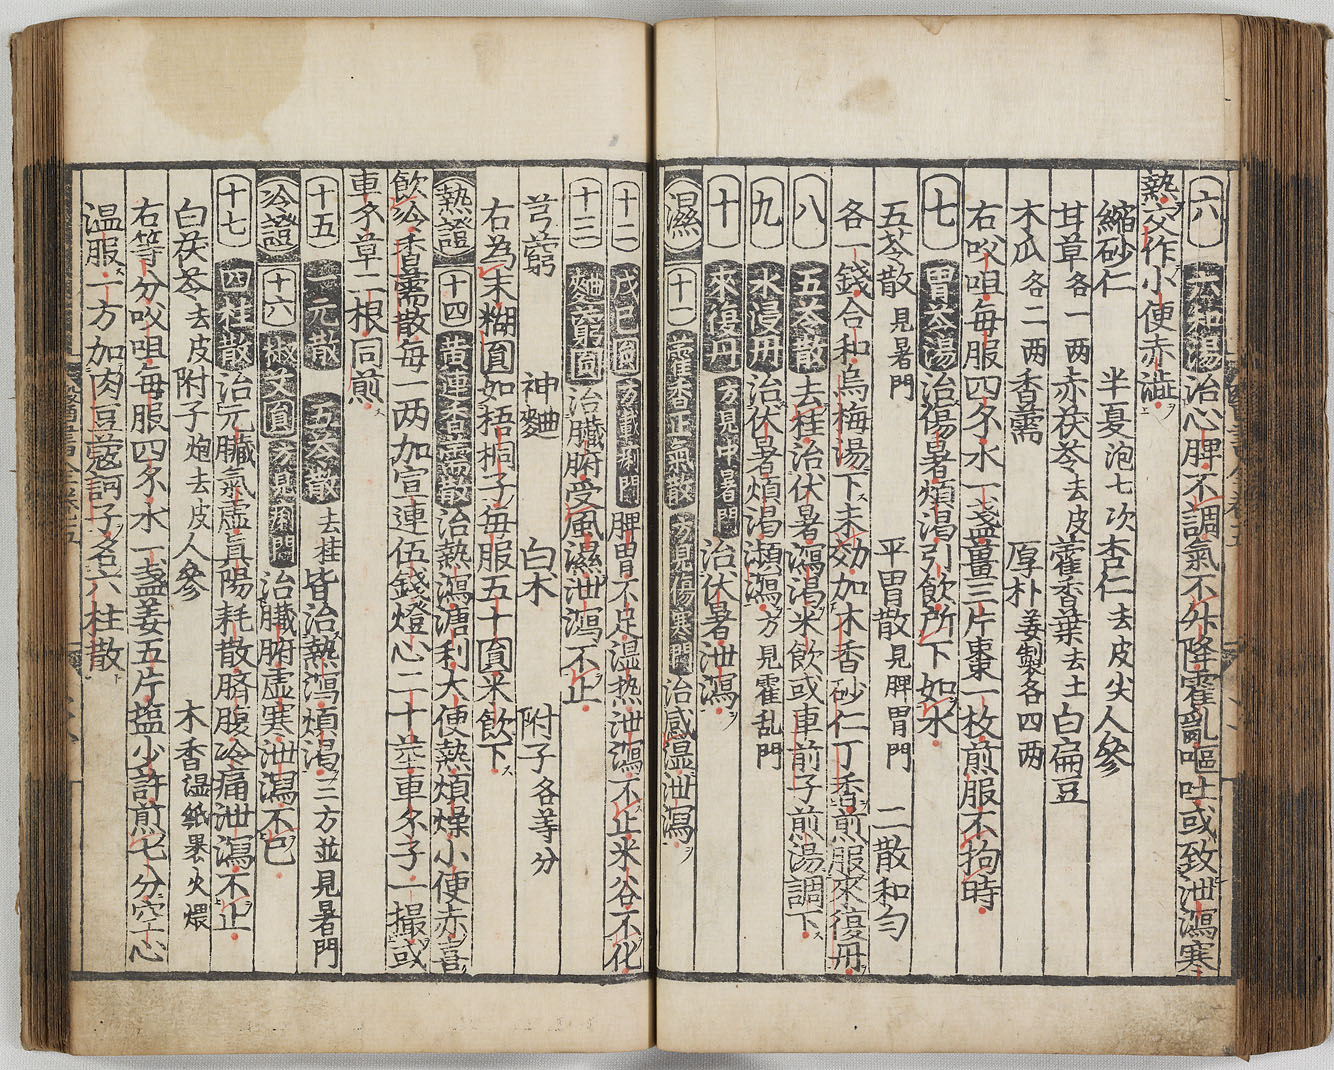 六 六和湯 治心脾不調氣不升降霍亂嘔吐或致泄瀉寒
熱交作小便赤澁
縮砂仁 半夏泡七次 杏仁去皮尖 人參
甘草各一两 赤茯苓去皮 藿香葉去土 白扁豆
木瓜各二两 香薷 厚朴姜製各四两
右㕮咀每服四尒水一盞薑三片棗一枚煎服不拘時
七 胃苓湯 治傷暑煩渴引飲所下如水
五苓散見暑門 平胃散見脾胃門 二散和勻
各一錢合和烏梅湯下未効加木香砂仁丁香煎服來復丹
八 五苓散 去桂治伏暑瀉渴米飲或車前子煎湯調下
九 水浸丹 治伏暑煩渴瀕瀉方見霍乱門
十 來復丹 方見中暑門 治伏暑泄瀉
濕 十一 藿香正氣散 方見傷寒門 治感湿泄瀉
十二 戊己圎 方載痢門 脾胃不足湿热泄瀉不止米谷不化
十三 麯藭圎 治臟腑受風濕泄瀉不止
芎藭 神麯 白术 附子各等分
右為末糊圎如梧桐子每服五十圎米飲下
熱證 十四 黄連香薷散 治熱瀉溏利大便熱煩燥小便赤喜
飲冷香薷散每一两加宣連伍錢燈心二十莖車尒子一撮或
車尒草二根同煎
十五 一元散 五苓散 去桂 皆治熱瀉煩渴二方並見暑門
冷證 十六 椒文圎 方見痢門 治臟腑虚寒泄瀉不已
十七 四柱散 治元臟氣虚真陽耗散臍腹冷痛泄瀉不止
白茯苓去皮 附子炮去皮 人參 木香湿紙裹火煨
右等分㕮咀每服四尒水一盞姜五片塩少許煎七分空心
温服一方加肉豆蔻訶子名六柱散